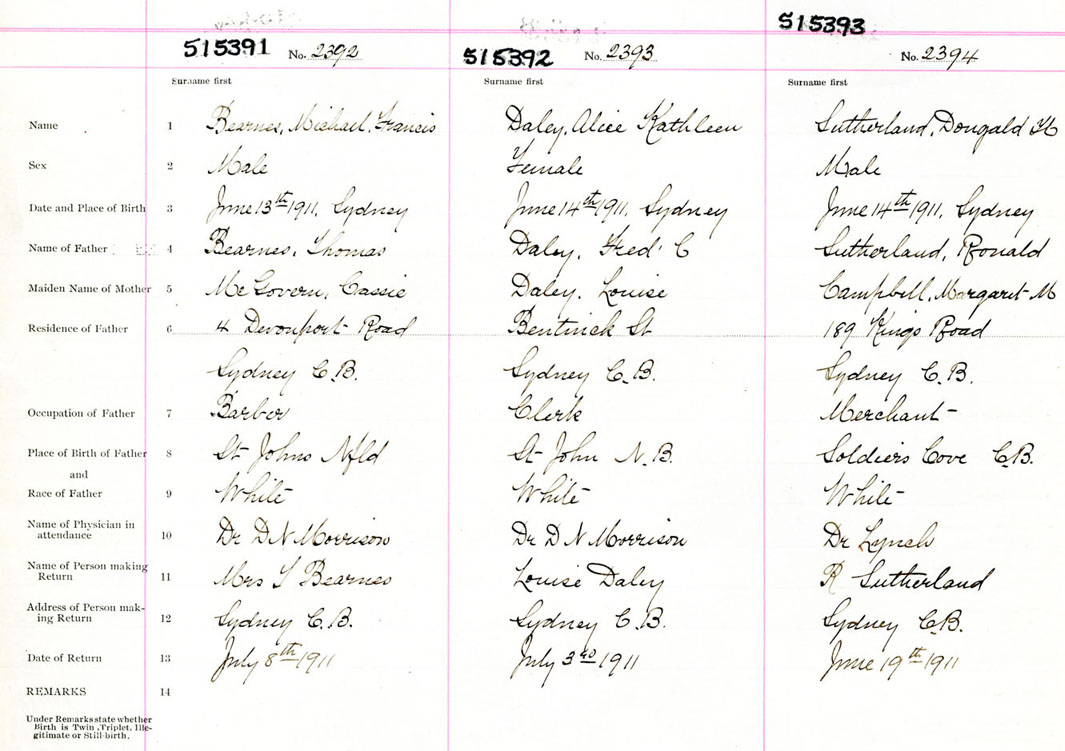 515391 No. 2392 515392 No. 2393 515393 No. 2394
Surname first Surname first Surname first
Name 1 Bearnes, Michael, Francis Daley, Alice Kathleen Sutherland, Dougald H
Sex 2 Male Female Male
Date and Place of Birth 3 June 13th 1911, Sydney June 14th 1911, Sydney June 14th 1911, Sydney
Name of Father 4 Bearnes, Thomas Daley, Fred' C Sutherland, Ronald
Maiden Name of Mother 5 McGovern, Cassie Daley, Louise Campbell, Margaret M
Residence of Father 6 4 Devonport Road Bentinck St 189 Kings Road
Sydney C.B. Sydney C.B. Sydney C.B.
Occupation of Father 7 Barber Clerk Merchant
Place of Birth of Father 8 St Johns Nfld St John N.B. Soldiers Cove C.B.
and
Race of Father 9 White White White
Name of Physician in
attendance 10 Dr D N Morrison Dr D N Morrison Dr Lynch
Name of Person making
Return 11 Mrs T Bearnes Louise Daley R Sutherland
Address of Person mak-
ing Return 12 Sydney C.B. Sydney C.B. Sydney C.B.
Date of Return 13 July 8th 1911 July 3rd 1911 June 19th 1911
REMARKS 14
Under Remarks state whether
Birth is Twin, Triplet, Ille-
gitimate or Still-birth.